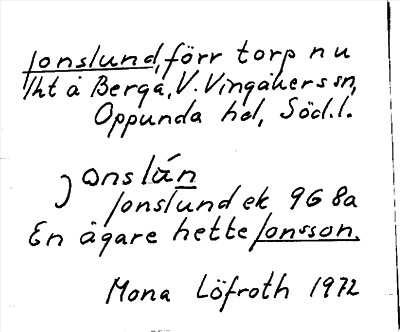 Jonslund, förr torp nu
lht å Berga, V. Vingåkers sn,
Oppunda hd, Söd.l.
Jonslún
Jonslund ek 9G 8a
En ägare hette Jonsson.
Mona Löfroth 1972